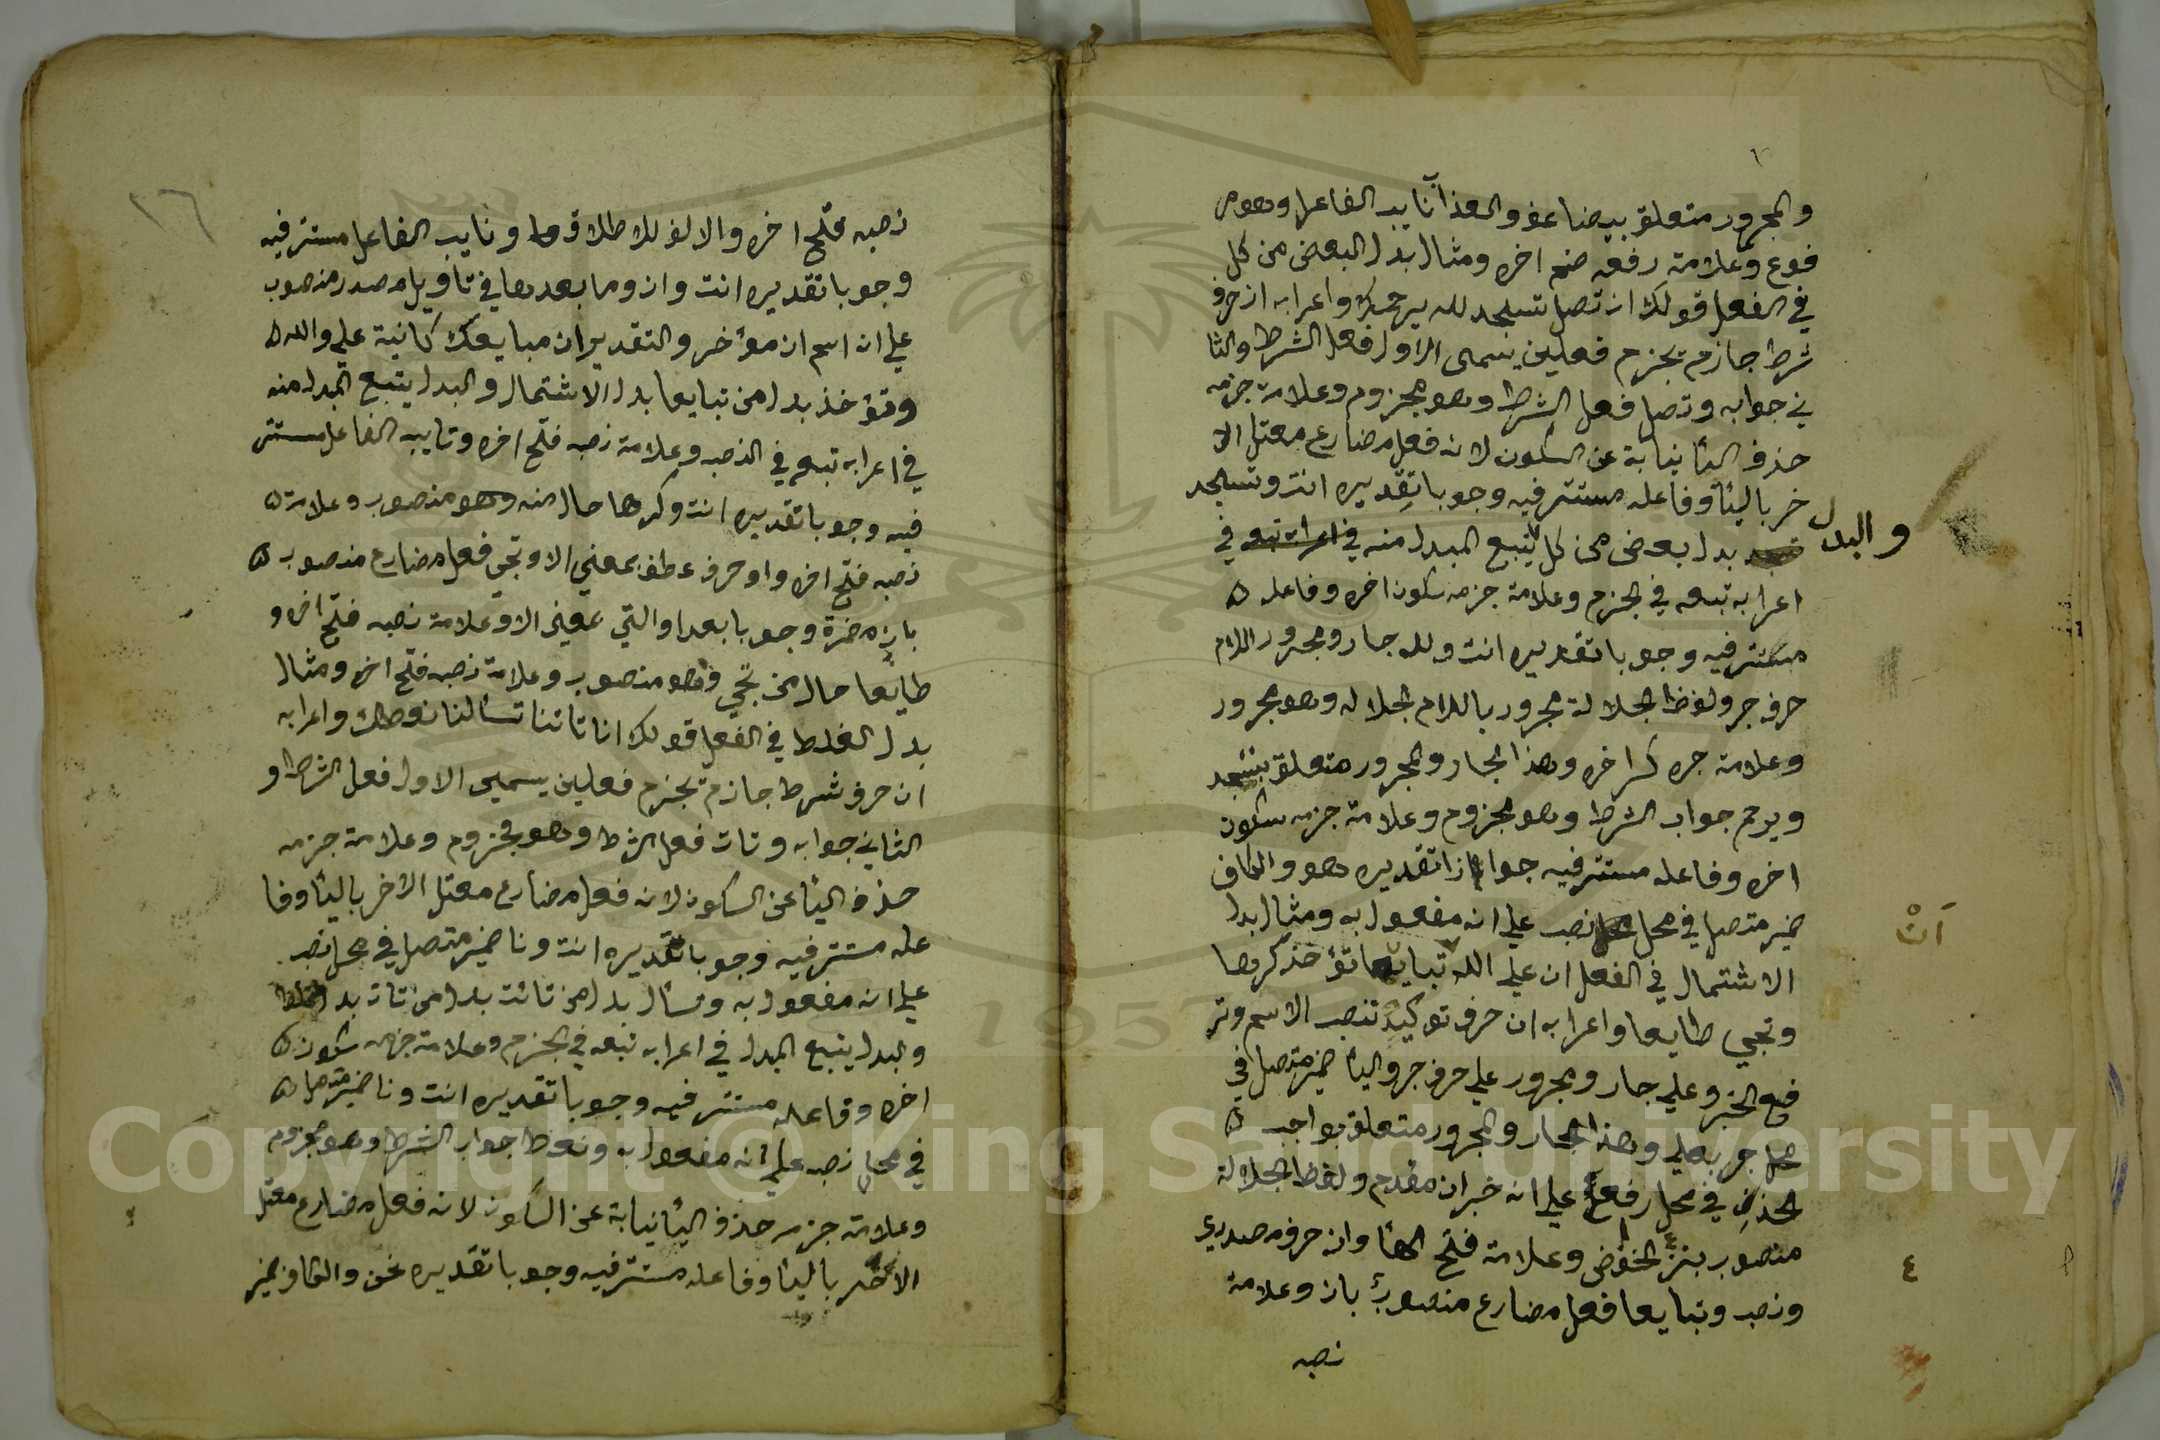 والمجرور متعلق بيضاعف والعذاب نايب الفاعل وهو مر
فوع وعلامة رفعه ضم اخره ومثال بدل البعض من كل
في الفعل قولك ان تصل تسجد لله يرحمك واعرابه ان حرف
شرط جازم يجزم فعلين يسمى الاول فعل الشرط والثا
ني جوابه وتصل فعل الشرط وهو مجزوم وعلامة جزمه
حذف اليا نيابة عن السكون لانه فعل مضارع معتل الا
خر باليا وفاعله مستتر فيه وجوبا تقديره انت وتسجد
بدل بعض من كل يتبع المبدل منه في
والبدل
في
اعرابه تبعه في الجزم وعلامة جزمه سكون اخره وفاعله ه
مستتر فيه وجوبا تقديره انت ولله جار ومجرور اللام
حرف جر ولفظ الجلالة مجرور باللام الجلاله وهو مجرور
وعلامة جره كسر اخره وهذا الجار والمجرور متعلق بتسجد
ويرحم جواب الشرط وهو مجزوم وعلامة جزمه سكون
اخره وفاعله مستتر فيه جوازا تقديره هو والكاف
ضمير متصل في محل نصب علي انه مفعول به ومثال بدل
أنْ
الاشتمال في الفعل ان علي الله تبايعا تؤخذ كرها
وتجي طايعا واعرابه ان حرف توكيد تنصب الاسم وتر
فع الخبر وعلي جار ومجرور علي حرف جر واليا ضمير متصل في
محل جر بعلي وهذا الجار والمجرور متعلق بواجب ه
الحذف في محل رفع علي انه خبر ان مقدم ولفظ الجلالة
منصوب بنزع الخفض وعلامة فتح الها وان حرف مصدري
٤
ونصب وتبايعا فعل مضارع منصوب بان وعلامة
نصبه
١٦
نصبه فتح اخره والالف للاطلاق وما ونايب الفاعل مستتر فيه
وجوبا تقديره انت وان وما بعدها في تاويل مصدر منصوب
علي انه اسم ان مؤخر والتقدير ان مبايعك كانية علي والله ه
وتؤخذ بدل من تبايعا بدل الاشتمال والبدل يتبع المبدل منه
في اعرابه تبعه في النصب وعلامة نصبه فتح اخره ونايب الفاعل مستتر
فيه وجوبا تقديره انت وكرها حال منه وهو منصوب وعلامة ه
نصبه فتح اخره واو حرف عطف بمعني الا وتجي فعل مضارع منصوب ه
بان مضمرة وجوبا بعد او التي بمعني الا وعلامة نصبه فتح اخره و
طايعا حال من تجي وهو منصوب وعلامة نصبه فتح اخره ومثال
بدل الغلط في الفعل قولك ان تاتنا تسألنا نعطك واعرابه
ان حرف شرط جازم يجزم فعلين يسمي الاول فعل الشرط و
الثاني جوابه وتات فعل الشرط وهو مجزوم وعلامة جزمه
حذف اليا عن السكون لانه فعل مضارع معتل الاخر باليا وفا
عله مستتر فيه وجوبا تقديره انت ونا ضمير متصل في محل نصب
علي انه مفعول به وتسأل بدل من تات بدل من تات بدل الغلط
والبدل يتبع المبدل في اعرابه تبعه في الجزم وعلامة جزمه سكون ه
اخره وفاعله مستتر فيه وجوبا تقديره انت ونا ضمير متصل ه
في محل نصب علي انه مفعول به ونعط جواب الشرط وهو مجزوم
وعلامة جزمه حذف اليا نيابة عن السكون لانه فعل مضارع معتل
الاخر باليا وفاعله مستتر فيه وجوبا تقديره نحن والكاف ضمير
Copyright © King Saud University
1957